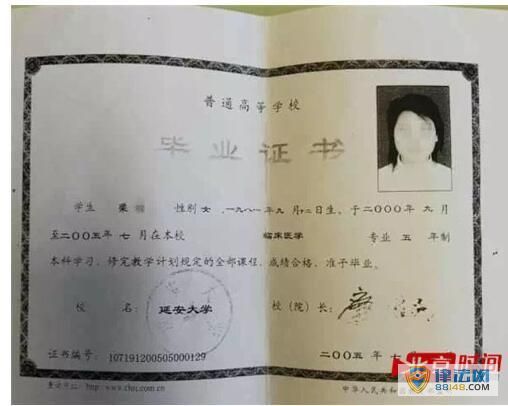 普通高等学校
毕业证书
学生 梁 性别 女 ,一九八一年 九 月 十二日生，于二〇〇〇年 九 月
至二〇〇五年 七 月在本校 临床医学 专业 五 年制
本科学习，修完教学计划规定的全部课程，成绩合格，准予毕业。
校 名： 延安大学 校（院）长：
证书编号： 107191200505000129 二〇〇五年 七
http://www.chsi.com.cn 中华人民共和国
北京时间
律法网
88148.com